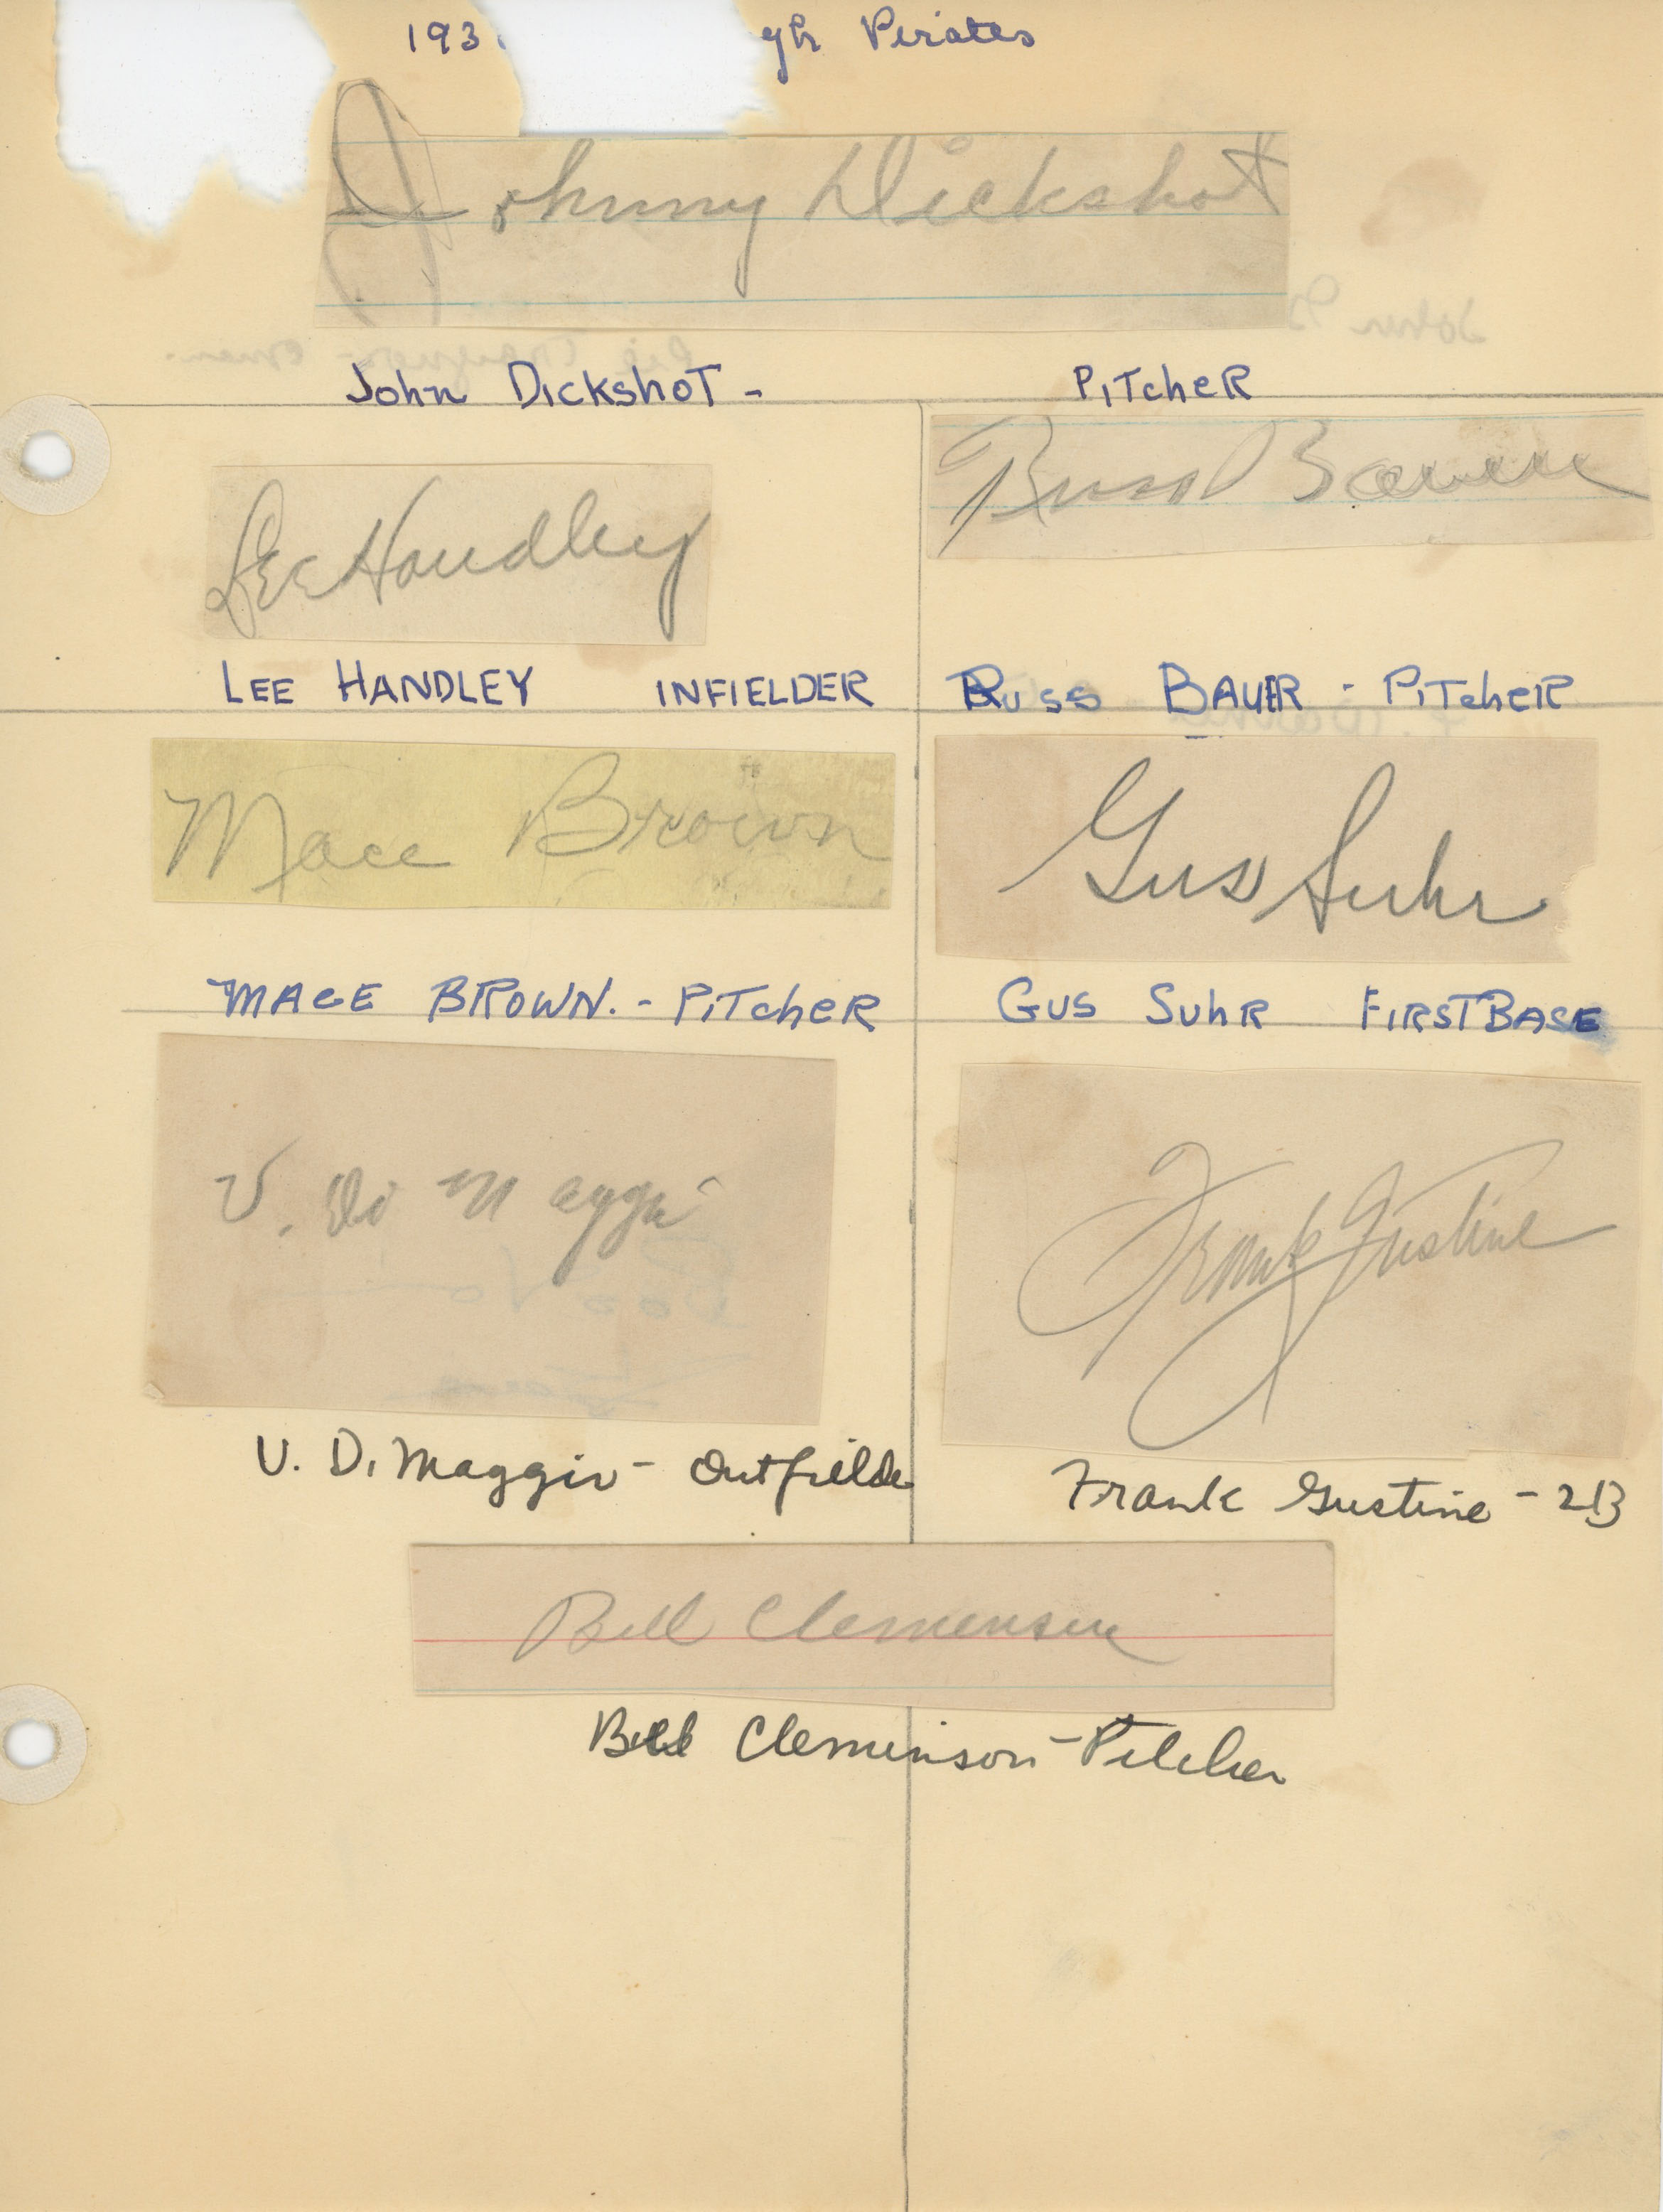 193 gh Pirates
Johnny Dickshot
John Dickshot - Pitcher
Lee Handley
Russ Bauer
LEE HANDLEY INFIELDER
Russ BAUER - PiTcheR
Mace Brown
Gus Suhr
MACE BROWN. - PiTcheR
GUS SuhR FIRST BASE
V. Di Maggio
Frank Gustine
V. DiMaggio - Outfielde
Frank Gustine - 2B
Bill Clemensen
Bill Cleminson - Pitcher